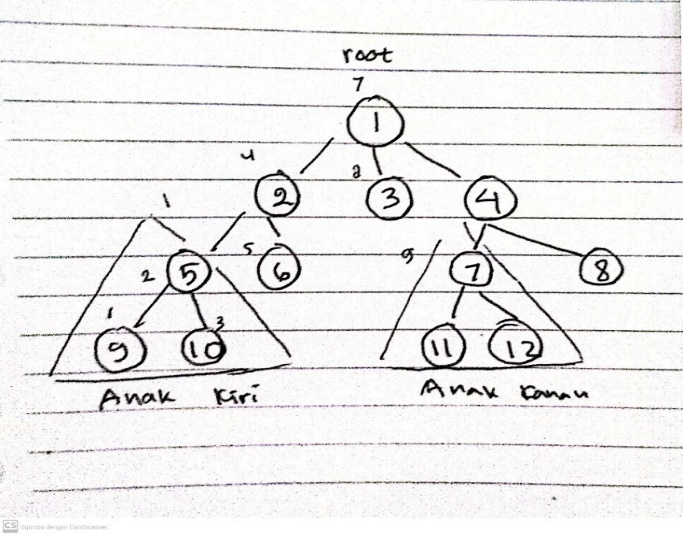 root
7
1
4 2 8 3 4
1
2 5 5 6 9 7 8
1 9 10 3 11 12
Anak Kiri Anak Kanan
CS Dipindai dengan CamScanner